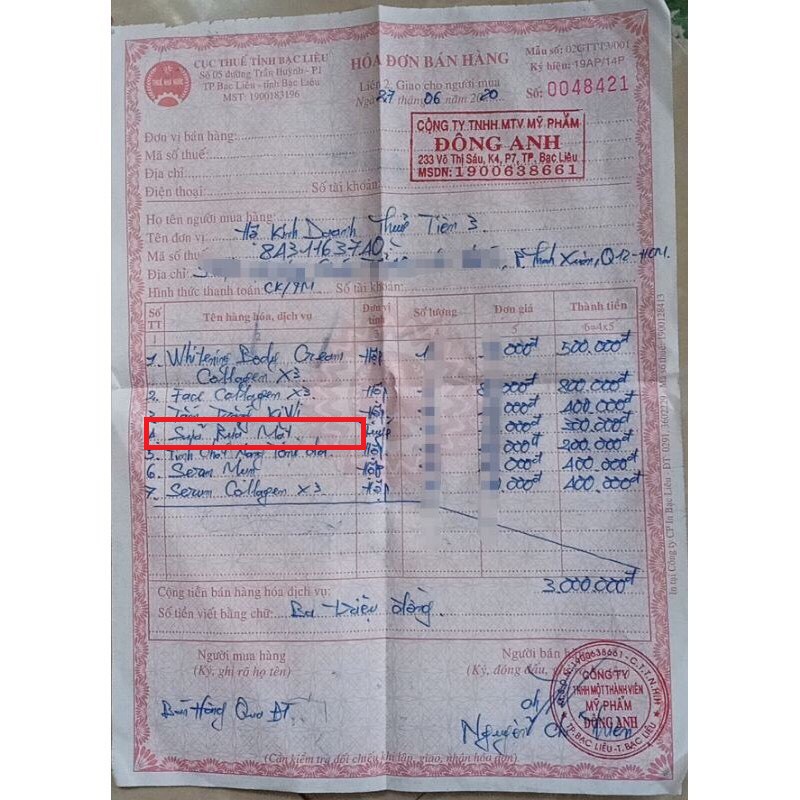 CỤC THUẾ TỈNH BẠC LIÊU
Số 05 đường Trần Huỳnh - P1
TP Bạc Liêu - tỉnh Bạc Liêu
MST: 1900183196
THUẾ NHÀ NƯỚC
HÓA ĐƠN BÁN HÀNG
Liên 2: Giao cho người mua
Ngày 27 tháng 06 năm 2020
Mẫu số: 02GTTT3/001
Ký hiệu: 19AP/14P
Số: 0048421
Đơn vị bán hàng:
Mã số thuế:
Địa chỉ:
Điện thoại: Số tài khoản:
CÔNG TY TNHH MTV MỸ PHẨM
ĐÔNG ANH
233 Võ Thị Sáu, K4, P7, TP. Bạc Liêu
MSDN: 1900638661
Họ tên người mua hàng:
Tên đơn vị: Hộ Kinh Doanh Thuỷ Tiên 3
Mã số thuế: 8431163740
Địa chỉ: P Thạnh Xuân, Q12-HCM.
Hình thức thanh toán: CK/TM Số tài khoản:
Số TT Tên hàng hóa, dịch vụ Đơn vị tính Số lượng Đơn giá Thành tiền
1 5 6=4x5
1. Whitening Body Cream Collagen X3 Hộp 1 000đ 500.000đ
2. Face Collagen X3 Hộp 000đ 800.000đ
3 Tắm Trắng KiWi Hộp 000đ 400.000đ
4. Sữa Rửa Mặt 000đ 300.000đ
5 Tinh Chất Nâng Tông Da Hộp 000đ 200.000đ
6 Serum Mụn Hộp 000đ 400.000đ
7. Serum Collagen X3 Hộp 000đ 400.000đ
Cộng tiền bán hàng hóa dịch vụ: 3.000.000đ
Số tiền viết bằng chữ: Ba triệu đồng.
Người mua hàng
(Ký, ghi rõ họ tên)
Bán Hàng Qua ĐT
Người bán hàng
(Ký, đóng dấu,
Nguyễn
M.S.D.N:1900638661 - C.T.T.N.H.H
CÔNG TY
TNHH MỘT THÀNH VIÊN
MỸ PHẨM
ĐÔNG ANH
TP. BẠC LIÊU - T. BẠC LIÊU
(Cần kiểm tra đối chiếu khi lập, giao, nhận hóa đơn)